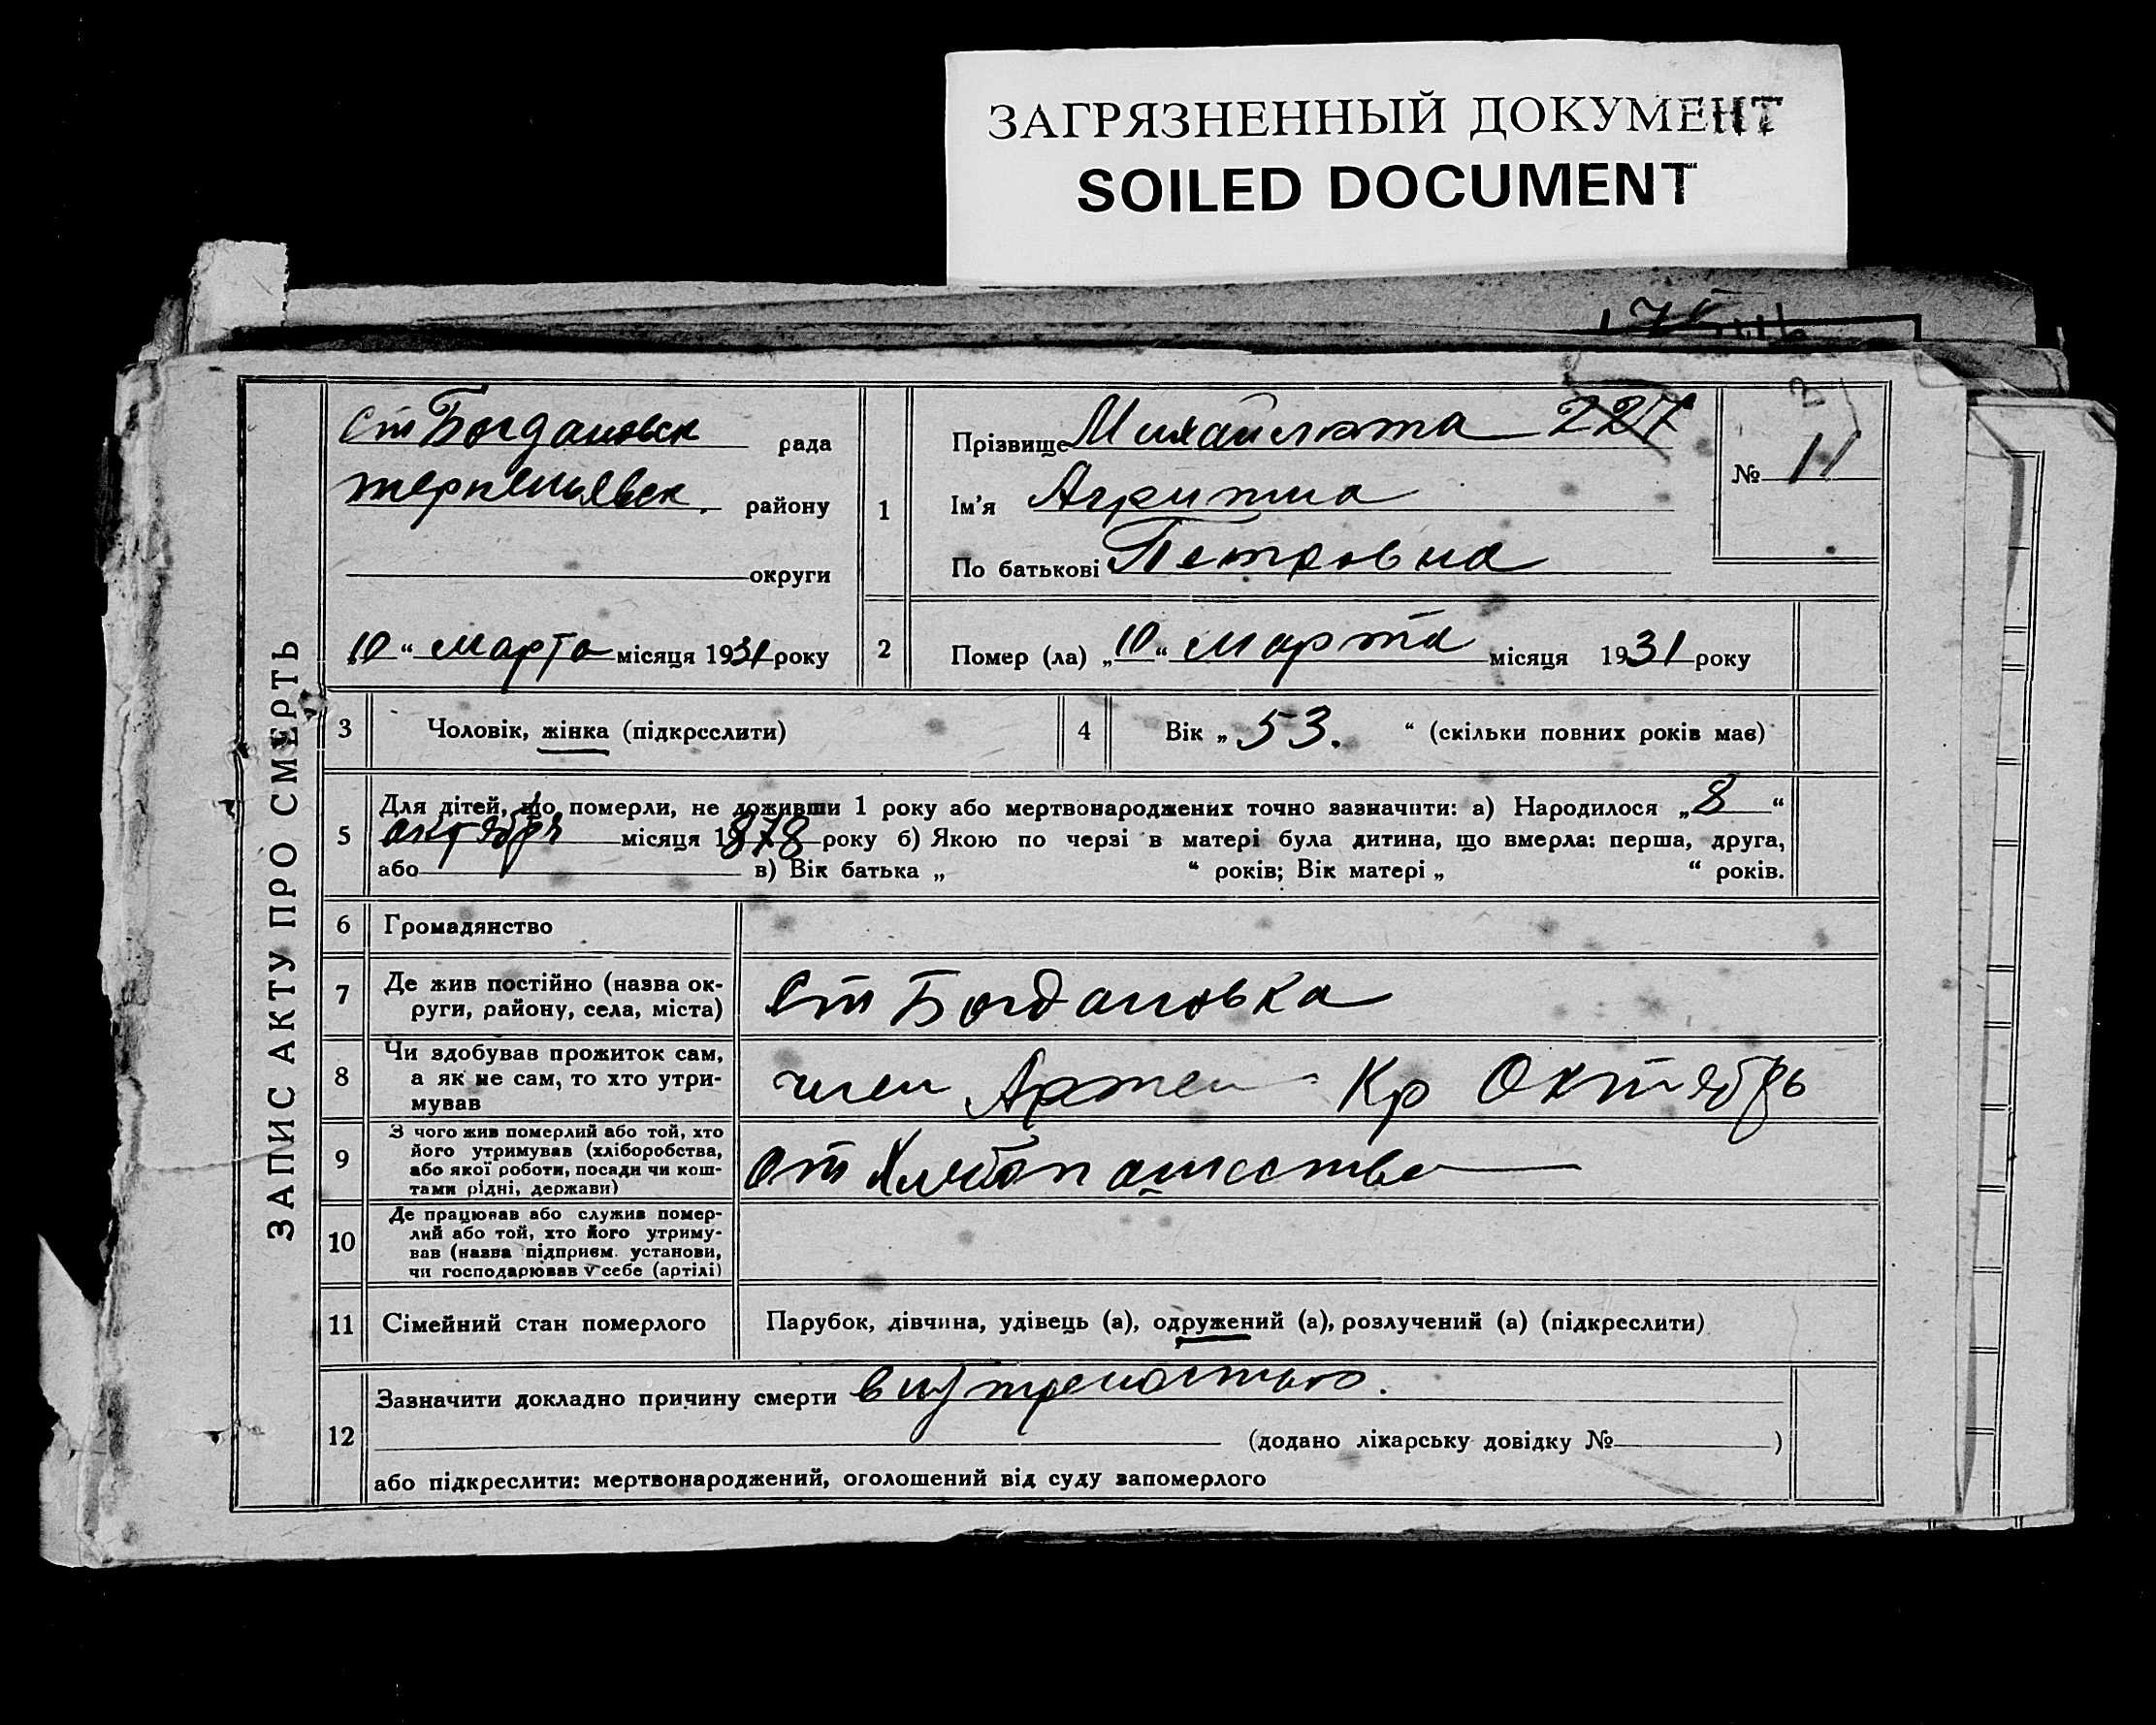 ЗАГРЯЗНЕННЫЙ ДОКУМЕНТ
SOILED DOCUMENT
ЗАПИС АКТУ ПРО СМЕРТЬ
Ст Богдановск рада
району
округи
„10“ марта місяця 1931 року
1
Прізвище 227
Ім'я
По батькові Петровна
№ 11
2
Помер (ла) „10“ марта місяця 1931 року
3 Чоловік, жінка (підкреслити)
4 Вік „53.“ (скільки повних років має)
5
Для дітей, що померли, не доживши 1 року або мертвонароджених точно зазначити: а) Народилося „8“
октября місяця 1878 року б) Якою по черзі в матері була дитина, що вмерла: перша, друга,
або в) Вік батька „ “ років; Вік матері „ “ років.
6 Громадянство
7
Де жив постійно (назва ок-
руги, району, села, міста)
Ст Богдановка
8
Чи здобував прожиток сам,
а як не сам, то хто утри-
мував
член Артел Кр Октябрь
9
З чого жив померлий або той, хто
його утримував (хліборобства,
або якої роботи, посади чи кош-
тами рідні, держави)
от Хлебопашества
10
Де працював або служив помер-
лий або той, хто його утриму-
вав (назва підприєм. установи,
чи господарював у себе (артілі)
11 Сімейний стан померлого
Парубок, дівчина, удівець (а), одружений (а), розлучений (а) (підкреслити)
12
Зазначити докладно причину смерти
(додано лікарську довідку № )
або підкреслити: мертвонароджений, оголошений від суду запомерлого